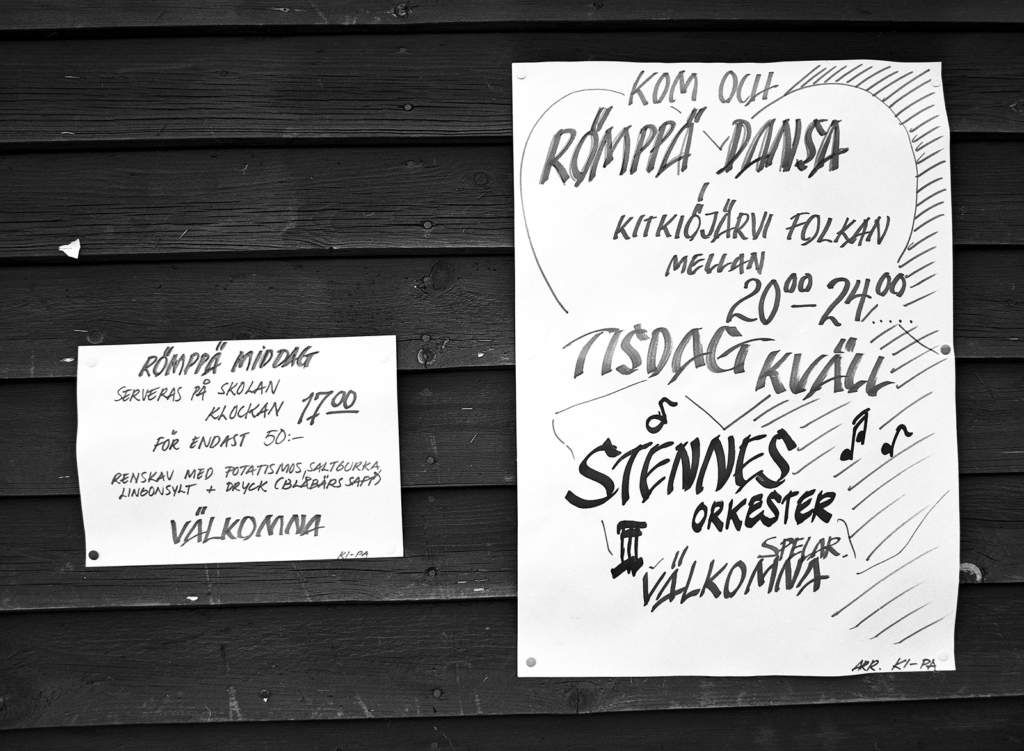 RÖMPPÄ MIDDAG
SERVERAS PÅ SKOLAN
KLOCKAN 17⁰⁰
FÖR ENDAST 50:-
RENSKAV MED POTATISMOS, SALTGURKA,
LINGONSYLT + DRYCK (BLÅBÄRSSAFT)
VÄLKOMNA
KI-PA
KOM OCH
RÖMPPÄ DANSA
i
KITKIÖJÄRVI FOLKAN
MELLAN
20⁰⁰-24⁰⁰.....
TISDAG KVÄLL
STENNES
ORKESTER
SPELAR.
VÄLKOMNA
!!!
ARR. KI-PA